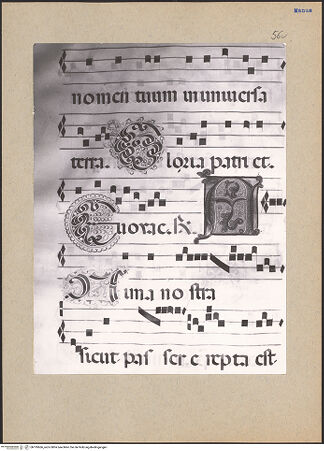 56
nomen tuum in universa
terra. Gloria patri et.
Euovae. R. A
nima nostra
sicut pas ser e repta est